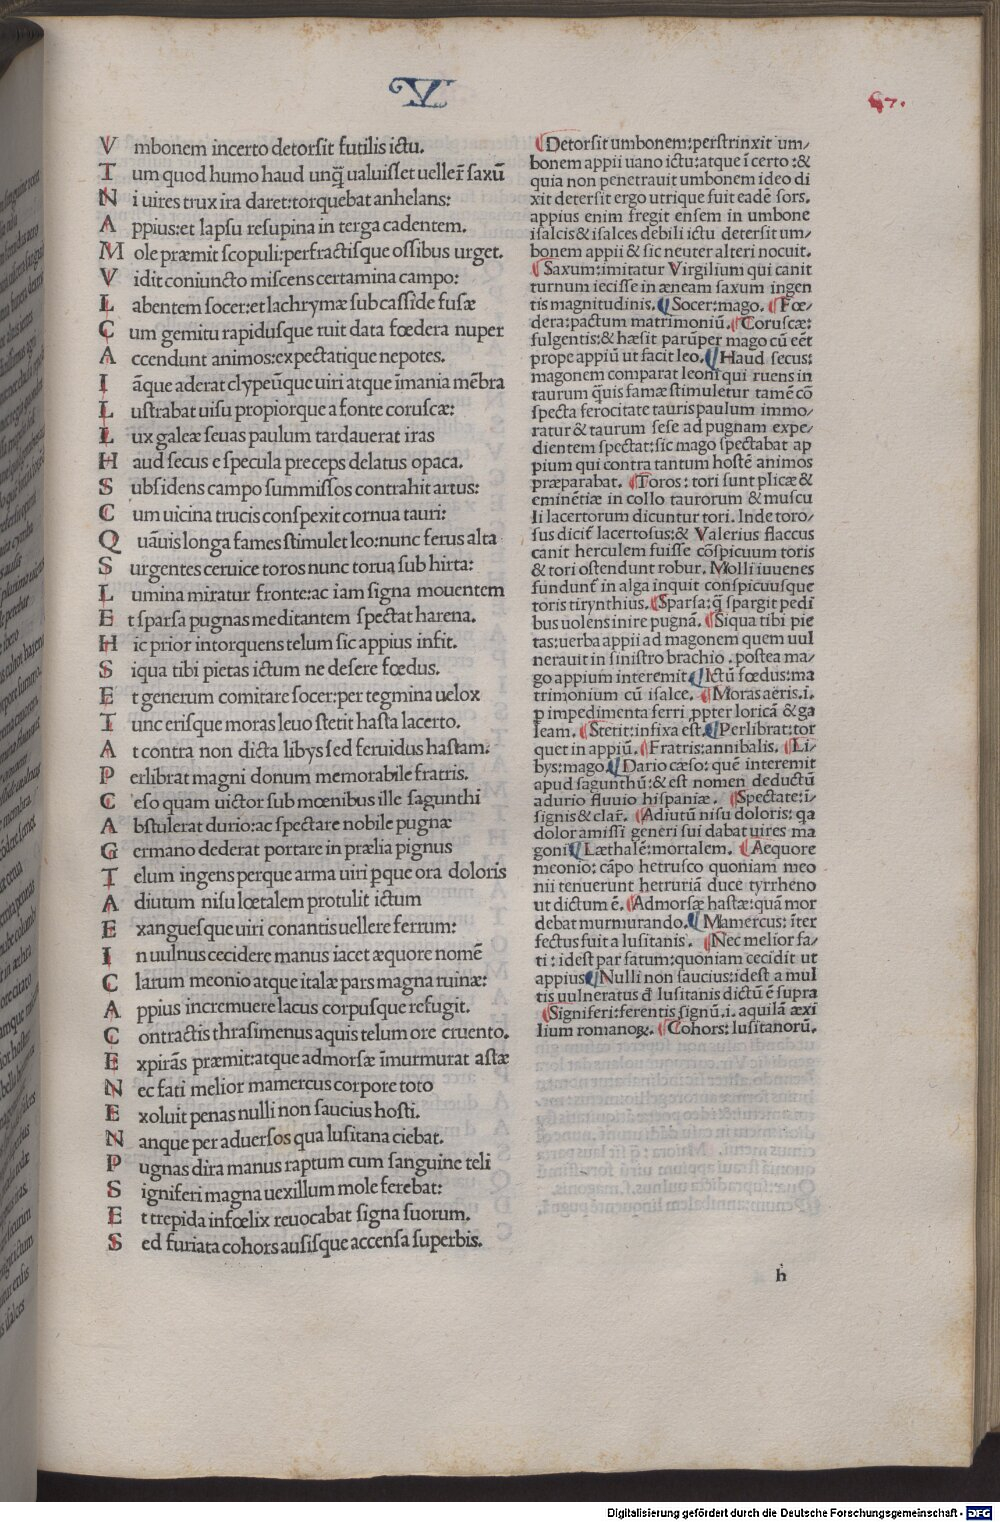 V
67.
V mbonem incerto detorsit futilis ictu.
T um quod humo haud unq̃ ualuisset ueller̃ saxũ
N i uires trux ira daret: torquebat anhelans:
A ppius: et lapsu resupina in terga cadentem.
M ole præmit scopuli: perfractisque ossibus urget.
V idit coniuncto miscens certamina campo:
L abentem socer: et lachrymæ sub casside fusæ
C um gemitu rapidusque ruit data fœdera nuper
A ccendunt animos: expectatique nepotes.
I ãque aderat clypeũque uiri atque ĩmania mẽbra
L ustrabat uisu propiorque a fonte coruscæ:
L ux galeæ seuas paulum tardauerat iras
H aud secus e specula preceps delatus opaca.
S ubsidens campo summissos contrahit artus:
C um uicina trucis conspexit cornua tauri:
Q uãuis longa fames stimulet leo: nunc ferus alta
S urgentes ceruice toros nunc torua sub hirta:
L umina miratur fronte: ac iam signa mouentem
E t sparsa pugnas meditantem spectat harena.
H ic prior intorquens telum sic appius infit.
S iqua tibi pietas ictum ne desere fœdus.
E t generum comitare socer: per tegmina uelox
T unc erisque moras leuo stetit hasta lacerto.
A t contra non dicta libys sed feruidus hastam.
P erlibrat magni donum memorabile fratris.
C eso quam uictor sub mœnibus ille sagunthi
A bstulerat durio: ac spectare nobile pugnæ
G ermano dederat portare in prælia pignus
T elum ingens perque arma uiri pque ora doloris
A diutum nisu lœtalem protulit ictum
E xanguesque uiri conantis uellere ferrum:
I n uulnus cecidere manus iacet æquore nomẽ
C larum meonio atque italæ pars magna ruinæ:
A ppius incremuere lacus corpusque refugit.
C ontractis thrasimenus aquis telum ore cruento.
E xpirãs præmit: atque admorsæ ĩmurmurat astæ
N ec fati melior mamercus corpore toto
E xoluit penas nulli non saucius hosti.
N anque per aduersos qua lusitana ciebat.
P ugnas dira manus raptum cum sanguine teli
S igniferi magna uexillum mole ferebat:
E t trepida infœlix reuocabat signa suorum.
S ed furiata cohors ausisque accensa superbis.
¶Detorsit umbonem: perstrinxit um/
bonem appii uano ictu: atque ĩcerto: &
quia non penetrauit umbonem ideo di
xit detersit ergo utrique fuit eadẽ sors.
appius enim fregit ensem in umbone
isalcis & isalces debili ictu detersit um/
bonem appii & sic neuter alteri nocuit.
¶Saxum: imitatur Virgilium qui canit
turnum iecisse in æneam saxum ingen
tis magnitudinis. ¶Socer: mago. ¶Fœ/
dera: pactum matrimoniũ. ¶Coruscæ:
fulgentis: & hæsit parũper mago cũ eẽt
prope appiũ ut facit leo. ¶Haud secus:
magonem comparat leoni qui ruens in
taurum q̃uis famæ stimuletur tamẽ cõ
specta ferocitate tauris paulum immo/
ratur & taurum sese ad pugnam expe/
dientem spectat: sic mago spectabat ap
pium qui contra tantum hostẽ animos
præparabat. ¶Toros: tori sunt plicæ &
eminẽtiæ in collo taurorum & muscu
li lacertorum dicuntur tori. Inde toro/
sus dicit̃ lacertosus: & Valerius flaccus
canit herculem fuisse cõspicuum toris
& tori ostendunt robur. Molli iuuenes
fundunt̃ in alga inquit conspicuusque
toris tirynthius. ¶Sparsa: q̃ spargit pedi
bus uolens inire pugnã. ¶Siqua tibi pie
tas: uerba appii ad magonem quem uul
nerauit in sinistro brachio. postea ma/
go appium interemit ¶Ictũ fœdus: ma
trimonium cũ isalce. ¶Moras aeris. i.
p impedimenta ferri ppter loricã & ga
leam. ¶Stetit: infixa est. ¶Perlibrat: tor
quet in appiũ. ¶Fratris: annibalis. ¶Li/
bys: mago. ¶Dario cæso: quẽ interemit
apud sagunthũ: & est nomen deductũ
a durio fluuio hispaniæ. ¶Spectate: i/
signis & clar̃. ¶Adiutũ nisu doloris: qa
dolor amissi generi sui dabat uires ma
goni ¶Læthalẽ: mortalem. ¶Aequore
meonio: cãpo hetrusco quoniam meo
nii tenuerunt hetruriã duce tyrrheno
ut dictum ẽ. ¶Admorsæ hastæ: quã mor
debat murmurando. ¶Mamercus: ĩter
fectus fuit a lusitanis. ¶Nec melior fa/
ti: idest par fatum: quoniam cecidit ut
appius ¶Nulli non saucius: idest a mul
tis uulneratus đ lusitanis dictũ ẽ supra
¶Signiferi: ferentis signũ. i. aquilã æxi
lium romanoꝝ. ¶Cohors: lusitanorũ.
h
Digitalisierung gefördert durch die Deutsche Forschungsgemeinschaft - DFG